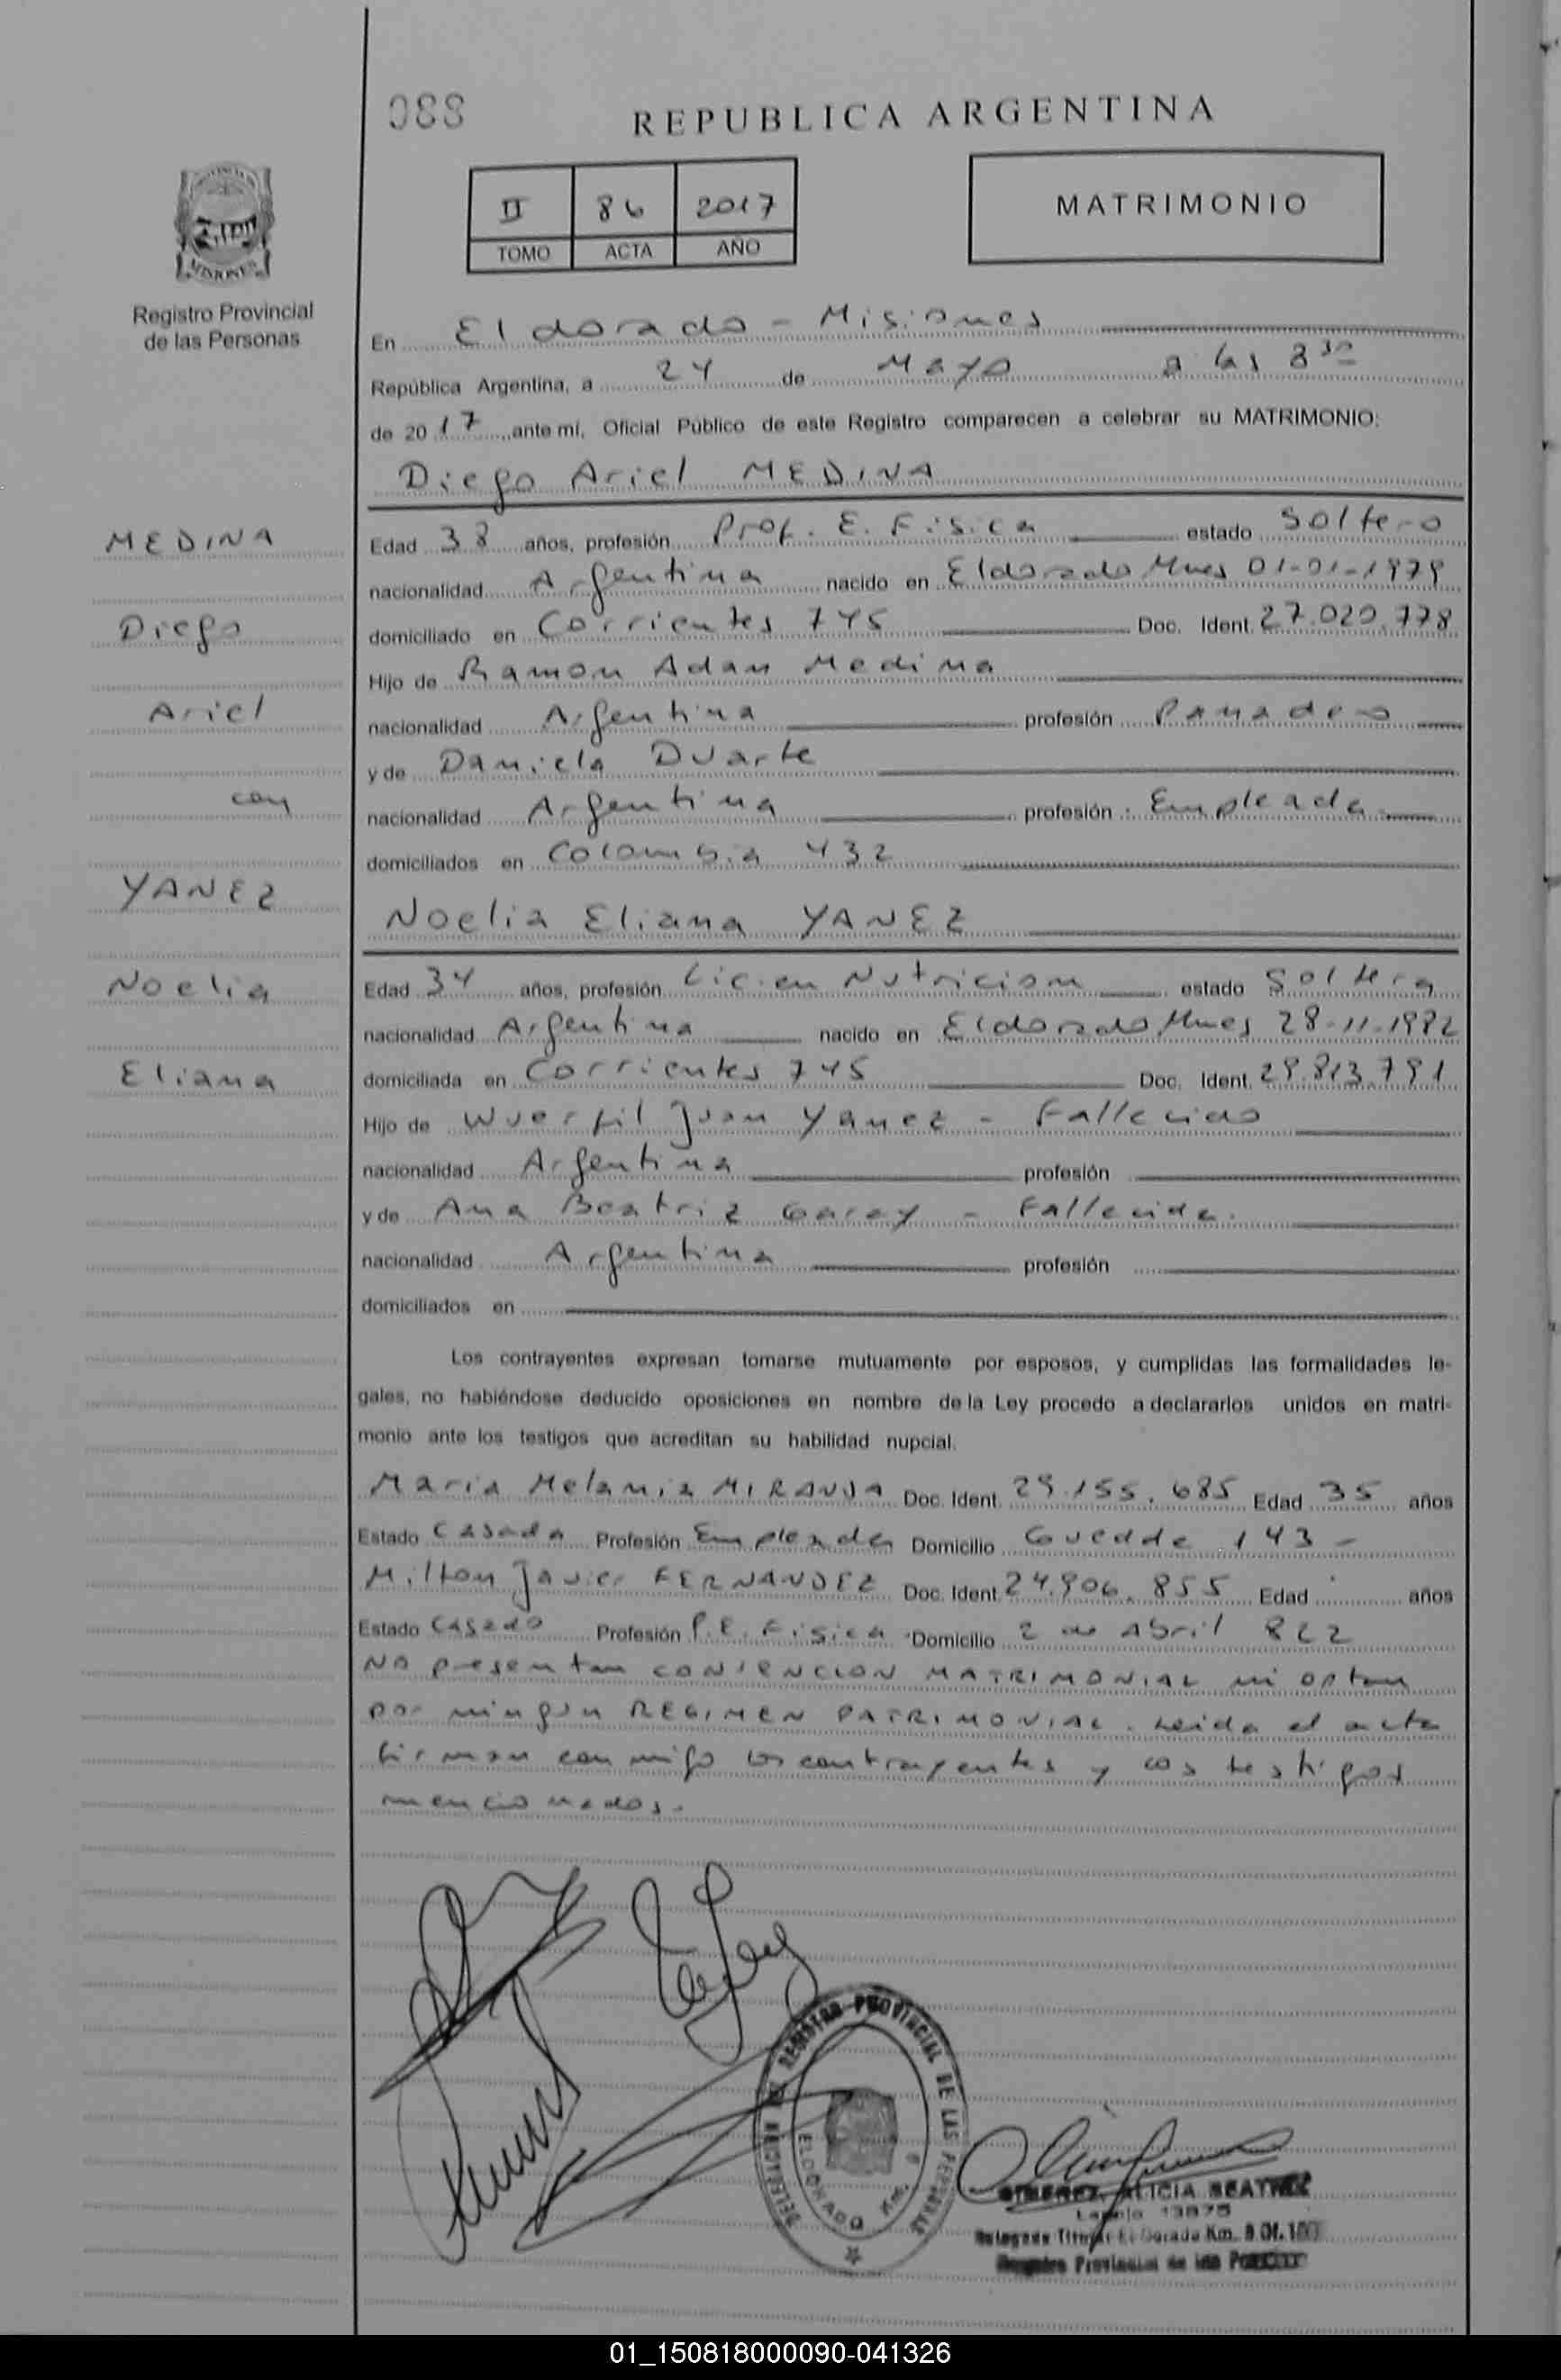 088
REPUBLICA ARGENTINA
II 86 2017
TOMO ACTA AÑO
MATRIMONIO
MISIONES
Registro Provincial
de las Personas
En Eldorado - Misiones
República Argentina, a 24 de Mayo a las 8 30
de 2017 ante mí, Oficial Público de este Registro comparecen a celebrar su MATRIMONIO:
Diego Ariel MEDINA
MEDINA
Diego
Ariel
con
YANEZ
Noelia
Eliana
Edad 38 años, profesión Prof. E. Fisica estado Soltero
nacionalidad Argentina nacido en Eldorado Mnes 01-01-1979
domiciliado en Corrientes 745 Doc. Ident. 27.020.778
Hijo de Ramon Adan Medina
nacionalidad Argentina profesión Panadero
y de Daniela Duarte
nacionalidad Argentina profesión Empleada
domiciliados en Colombia 432
Noelia Eliana YANEZ
Edad 34 años, profesión Lic. en Nutricion estado Soltera
nacionalidad Argentina nacido en Eldorado Mnes 28-11-1982
domiciliada en Corrientes 745 Doc. Ident. 29.813.791
Hijo de Wuerfil Juan Yanez - Fallecido
nacionalidad Argentina profesión
y de Ana Beatriz Garay - Fallecida.
nacionalidad Argentina profesión
domiciliados en
Los contrayentes expresan tomarse mutuamente por esposos, y cumplidas las formalidades le-
gales, no habiéndose deducido oposiciones en nombre de la Ley procedo a declararlos unidos en matri-
monio ante los testigos que acreditan su habilidad nupcial.
Maria Melania MIRANDA Doc. Ident. 29.155.685 Edad 35 años
Estado Casada Profesión Empleada Domicilio 143 -
Milton Javier FERNANDEZ Doc. Ident. 24.906.855 Edad años
Estado Casado Profesión P.E. Fisica Domicilio 2 de Abril 822
No presentan CONVENCION MATRIMONIAL ni optan
por ningun REGIMEN PATRIMONIAL. Leida el acta
firman conmigo los contrayentes y los testigos
mencionados.
REGISTRO PROVINCIAL DE LAS PERSONAS
ELDORADO Km. 9
GIMENEZ, ALICIA BEATRIZ
Legajo 13875
Delegada Titular Eldorado Km. 9 Of.
Registro Provincial de las Personas
01_150818000090-041326